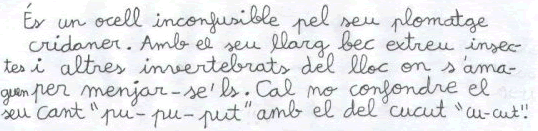 És un ocell inconfusible pel seu plomatge
cridaner. Amb el seu llarg bec extreu insec-
tes i altres invertebrats del lloc on s'ama-
guen per menjar-se'ls. Cal no confondre el
seu cant "pu-pu-put" amb el del cucut "cu-cut".